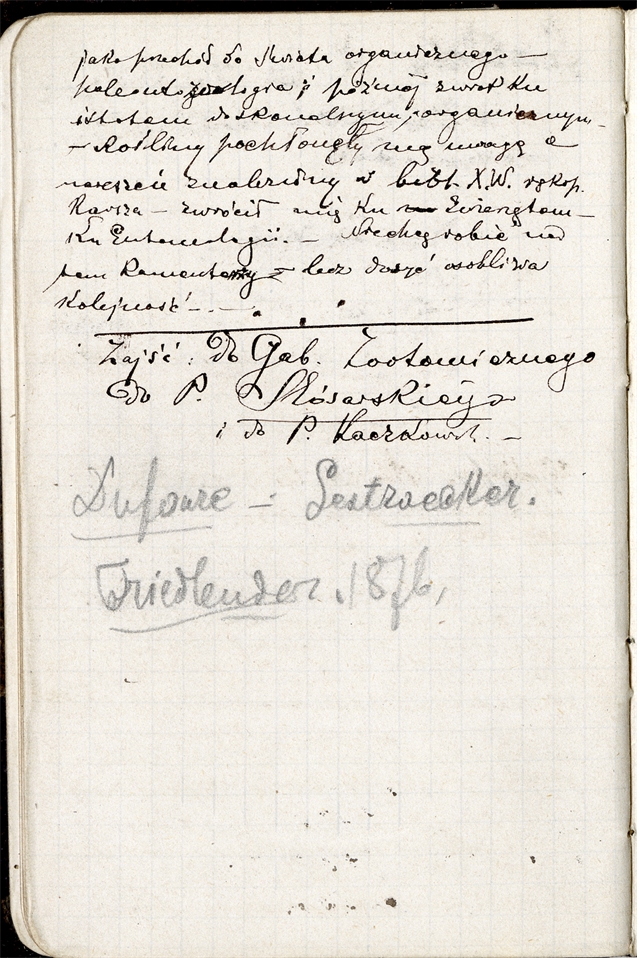 jako przechód do Świata organicznego —
paleontologia i później zwrot ku
istotom doskonalszym, organicznym. –
– Rośliny pochłonęły mą uwagę a
nareszcie znaleziony w bibl. X.W. rękop.
– zwrócił mię ku Zwierzętom –
Ku Entomologii. – Niechcę robić nad
tem Komentarzy – lecz dosyć osobliwa
Kolejność – . –
Zajść : do Gab. Zootomicznego
do P. Ślósarskiego
i do P. Kaczkowsk. –
Dufoure – Gerstaecker.
Friedlender. 1876,